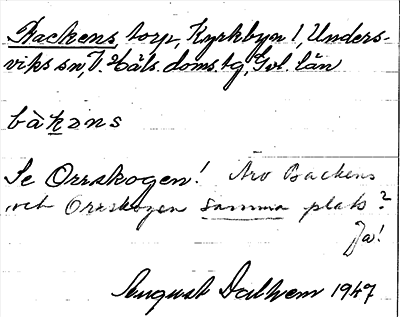 Backens, torp, Kyrkbyn 1, Unders-
viks sn, V. Häls. doms. tg, Gvl. län
bàk̲əns
Se Orrskogen! Äro Backens
och Orrskogen samma plats?
Ja!
August Dalhem 1947